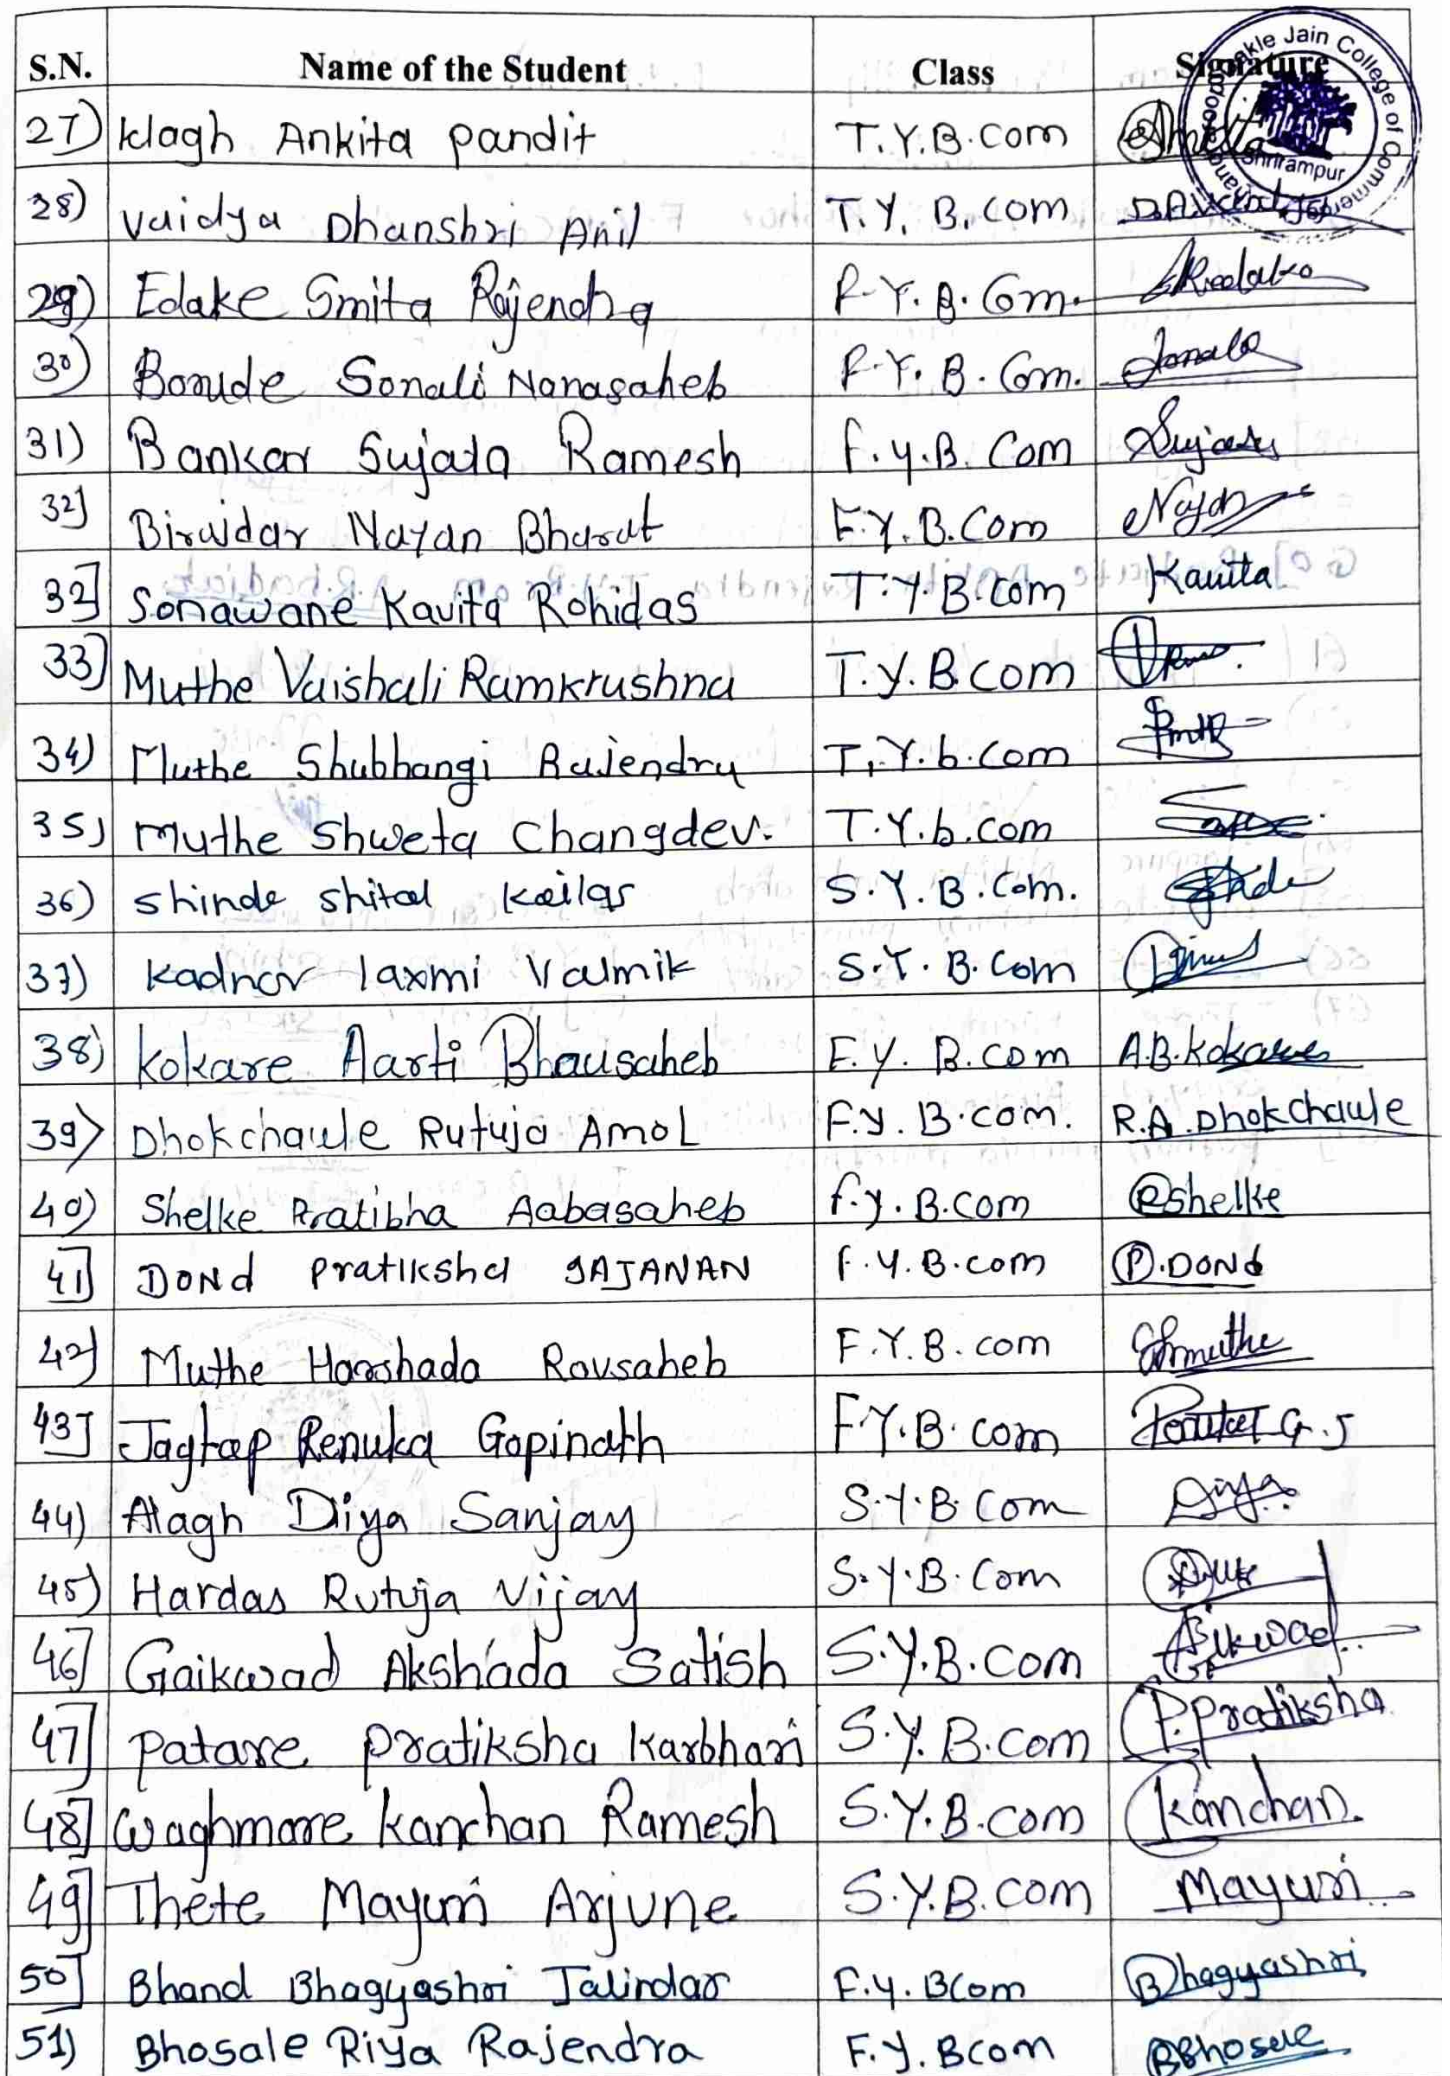 S.N. Name of the Student Class Signature
27) Wagh Ankita pandit T.Y.B.com
28) Vaidya Dhanshri Anil T.Y.B.com
29) Edake Smita Rajendra F.Y.B.Com.
30) Borude Sonali Nanasaheb F.Y.B.Com.
31) Bankar Sujata Ramesh F.Y.B.Com
32] Birajdar Nayan Bharat F.Y.B.Com Nayan
32] Sonawane Kavita Rohidas T.Y.B.com Kavita
33] Muthe Vaishali Ramkrushna T.Y.B.com
34) Muthe Shubhangi Rajendra T.Y.b.com
35) Muthe Shweta Changdev. T.Y.b.com
36) shinde shital kailas S.Y.B.Com.
37) Kadnor laxmi Valmik S.Y.B.Com
38) Kokare Aarti Bhausaheb F.Y.B.com A.B.Kokare
39) Dhokchaule Rutuja Amol F.Y.B.com. R.A.Dhokchaule
40) Shelke Pratibha Aabasaheb f.y.B.com Pshelke
41] DONd Pratiksha GAJANAN F.Y.B.com P.DONd
42) Muthe Harshada Ravsaheb F.Y.B.com
43] Jagtap Renuka Gopinath F.Y.B.com
44) Alagh Diya Sanjay S.Y.B.Com Diya
45) Hardas Rutuja Vijay S.Y.B.Com
46] Gaikwad Akshada Satish S.Y.B.Com
47] Patare pratiksha Karbhari S.Y.B.com P.Pratiksha
48] Waghmare Kanchan Ramesh S.Y.B.com Kanchan.
49] Thete Mayuri Arjune S.Y.B.com Mayuri
50] Bhand Bhagyashri Jalindar F.Y.BCom Bhagyashri
51) Bhosale Riya Rajendra F.Y.BCom RBhosale
Jain College of Commerce
Shrirampur